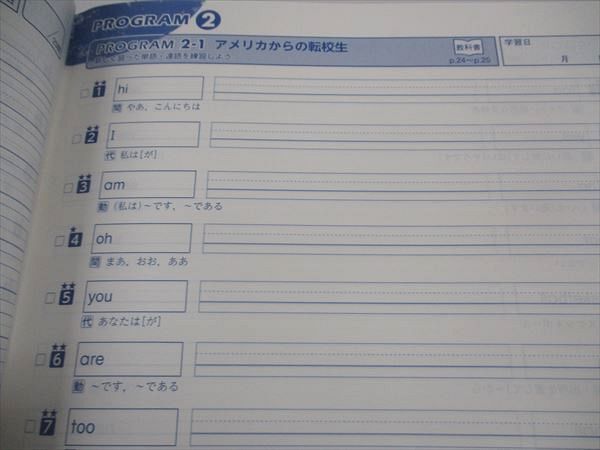 PROGRAM 2
PROGRAM 2-1 アメリカからの転校生
新しく習った単語・連語を練習しよう
教科書
p.24~p.25
学習日
月
1 hi
間 やあ、こんにちは
2 I
代 私は[が]
3 am
動 (私は)~です、~である
4 oh
間 まあ、おお、ああ
5 you
代 あなたは[が]
6 are
動 ~です、~である
7 too